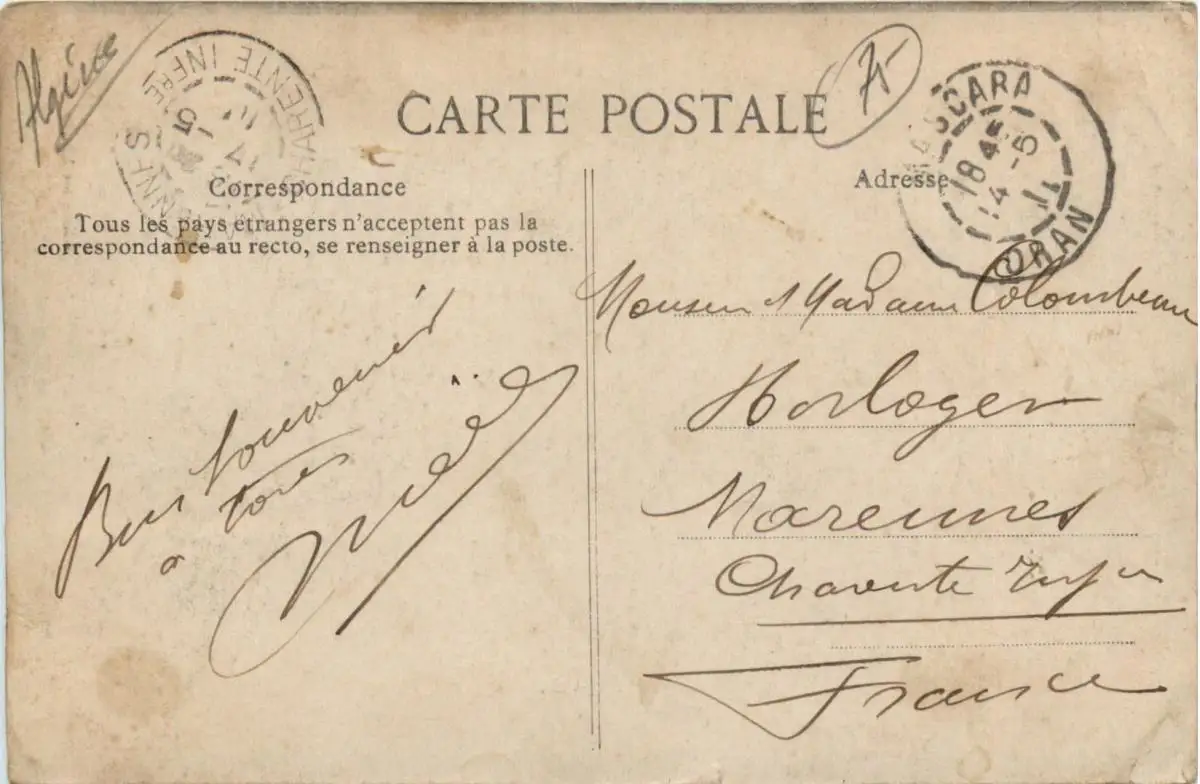 Algérie
CARTE POSTALE
75
Correspondance
Tous les pays étrangers n'acceptent pas la
correspondance au recto, se renseigner à la poste.
CHARENTE INFRE
MASCARA
18 45
14 -5
11
ORAN
Adresse
Bon souvenir
a tous
Monsieur & Madame Colombeau
Horloger
Marennes
Charente Infre
France